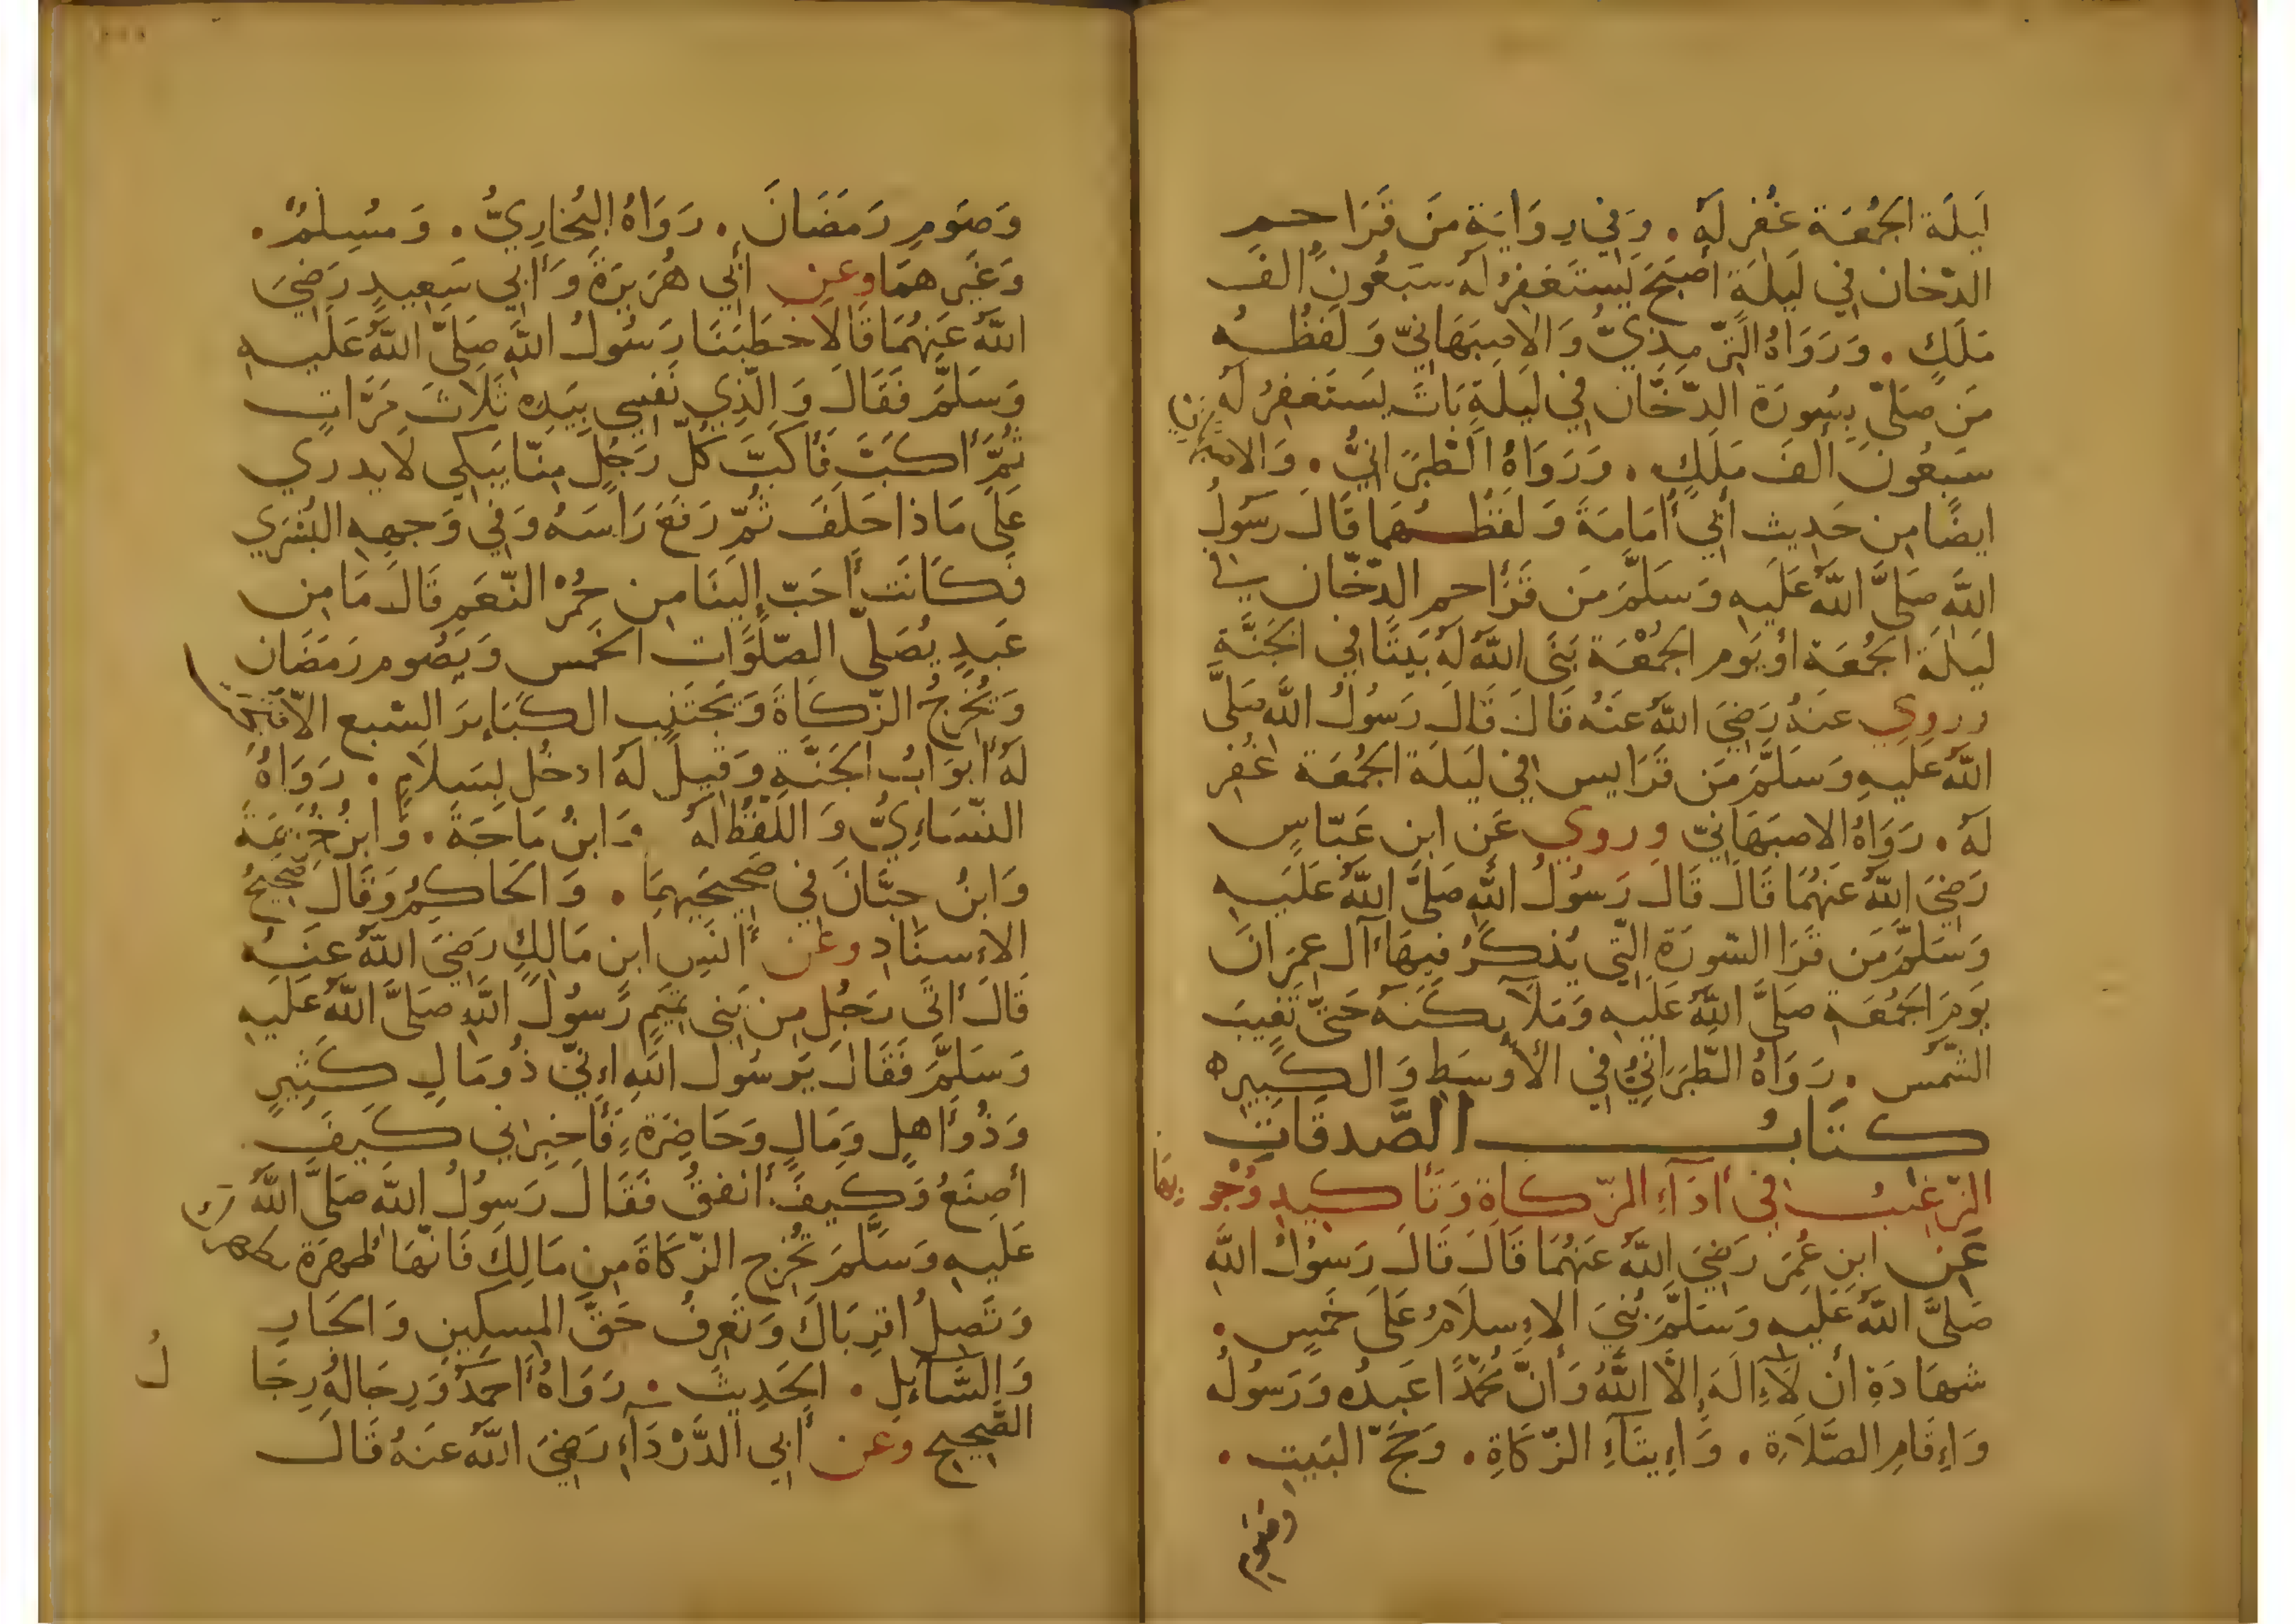 لَيلَة الجُمُعَة غُفر لَهُ . وَفي رِوَايَةٍ مَن قَرَا حم
الدّخان في لَيلَةٍ أصبَحَ يَستَغفِرُ لَهُ سَبعُون الف
مَلَكٍ . وَرَوَاهُ التّرمِذيُّ وَالاصبَهَانيّ وَلَفظُه
مَن صَلَّى بِسُورَة الدّخَان في لَيلَةٍ بَاتَ يَستَغفِرُ لَهُ
سَبعُونَ ألفَ مَلَكٍ . وَرَوَاهُ الطّبَرَانيُّ . وَالاصبهاني
ايضًا مِن حَدِيث أبي أُمَامَةَ وَلَفظُهمَا قَالَ رَسُولُ
اللَّهِ صَلَّى اللَّهُ عَلَيهِ وَسَلَّمَ مَن قَرَأ حم الدّخَان في
لَيلَة الجُمُعَة أو يَوم الجُمُعَة بَنَى اللَّهُ لَهُ بَيتًا في الجَنَّةِ
وروي عنهُ رَضِيَ اللَّهُ عَنهُ قَالَ قَالَ رَسُولُ اللَّهِ صَلَّى
اللَّهُ عَلَيهِ وَسَلَّمَ مَن قَرَا يس في لَيلَة الجُمُعَة غُفِر
لَهُ . رَوَاهُ الاصبَهَانيّ وروي عَن ابن عَبّاسٍ
رَضِيَ اللَّهُ عَنهُمَا قَالَ قَالَ رَسُولُ اللَّهِ صَلَّى اللَّهُ عَلَيهِ
وَسَلَّمَ مَن قَرَا السّورَة الّتي يُذكَرُ فيهَا آل عمرَان
يَومَ الجُمُعَةِ صَلَّى اللَّهُ عَلَيهِ وَمَلَآئِكَتهُ حَتّى تَغِيبَ
الشّمس . رَوَاهُ الطّبَرَانيُّ في الأوسَطِ وَالكَبِيرِ ه
كتَابُ الصَّدقَاتِ
الترّغيبُ في أدَآءِ الزّكَاةِ وَتَأكيدِ وُجُوبهَا
عَن ابنِ عُمَرَ رَضِيَ اللَّهُ عَنهُمَا قَالَ قَالَ رَسُولُ اللَّهِ
صَلَّى اللَّهُ عَلَيهِ وَسَلَّمَ بُنيَ الاِسلَامُ عَلَى خَمسٍ .
شهَادَةِ أن لَا إلَهَ إلَّا اللَّهُ وَأنَّ مُحَمَّدًا عَبدُه وَرَسُولُه
وَإِقَامِ الصَّلَاةِ . وَإِيتَآءِ الزّكَاةِ . وَحَجّ البَيتِ .
وَصَومِ
وَصَومِ رَمَضَانَ . رَوَاهُ البُخَارِيُّ . وَمُسِلمٌ .
وَغَيرهمَا وعن أبي هُرَيرَةَ وَأبي سَعِيدٍ رَضِيَ
اللَّهُ عَنهُمَا قَالَا خطَبَنَا رَسُولُ اللَّهِ صَلَّى اللَّهُ عَلَيهِ
وَسَلَّمَ فَقَالَ وَالّذِي نَفسِي بِيَدِه ثَلَاثَ مَرَّاتٍ
ثُمَّ أكَبَّ فَأكَبَّ كُلّ رَجُلٍ مِنّا يَبكي لَا يدري
عَلَى مَاذا حَلَفَ ثُمّ رَفَعَ رَاسَهُ وَفي وَجهِهِ البُشرَي
فَكَانَت أحَبّ إلَينَا مِن حُمْر النّعَمِ قَالَ مَا مِن
عَبدٍ يُصَلّي الصّلَوَات الخَمس وَيَصُوم رَمَضَان
وَيُخرِجُ الزّكَاةَ وَيَجتَنِب الكَبَايِرَ السّبع الّا فُتِحَت
لَهُ أبوَابُ الجَنَّةِ وَقيلَ لَهُ ادخُل بِسَلَامٍ . رَوَاهُ
النّسَاءِيُّ وَاللّفظُ لَهُ وَابنُ مَاجَةَ . وَابنُ خُزَيمَةَ
وَابنُ حِبَّانَ في صَحِيحَيهِمَا . وَالحَاكِمُ وَقَالَ صَحِيحُ
الاِسنَادِ وعن أنَسِ ابن مَالِكٍ رَضِيَ اللَّهُ عَنهُ
قَالَ أتَى رَجُل مِن بَنى تَميمٍ رَسُولَ اللَّهِ صَلَّى اللَّهُ عَلَيهِ
وَسَلَّمَ فَقَالَ يَرَسُول اللَّهِ اِنّي ذُو مَالٍ كَثِيرٍ
وَذُو أهلٍ وَمَالٍ وَحَاضِرَةٍ فَأخبِراني كَيفَ
أصنَعُ وَكَيفَ أنفقُ فَقَالَ رَسُولُ اللَّهِ صَلَّى اللَّهُ
عَلَيهِ وَسَلَّمَ تُخرِج الزّكَاةَ مِن مَالِكَ فَانّهَا طهرَة تطهرك
وَتَصِلُ اقرِبَاكَ وَتَعرِفُ حَقَّ المِسكِينِ وَالجَارِ
وَالسَّآئِلِ . الحَدِيثَ . رَوَاهُ أحمَدُ وَرِجَالهُ رِجَالُ
الصَّحِيحِ وعن أبي الدَّرْدَآءِ رَضِيَ اللَّهُ عَنهُ قَالَ